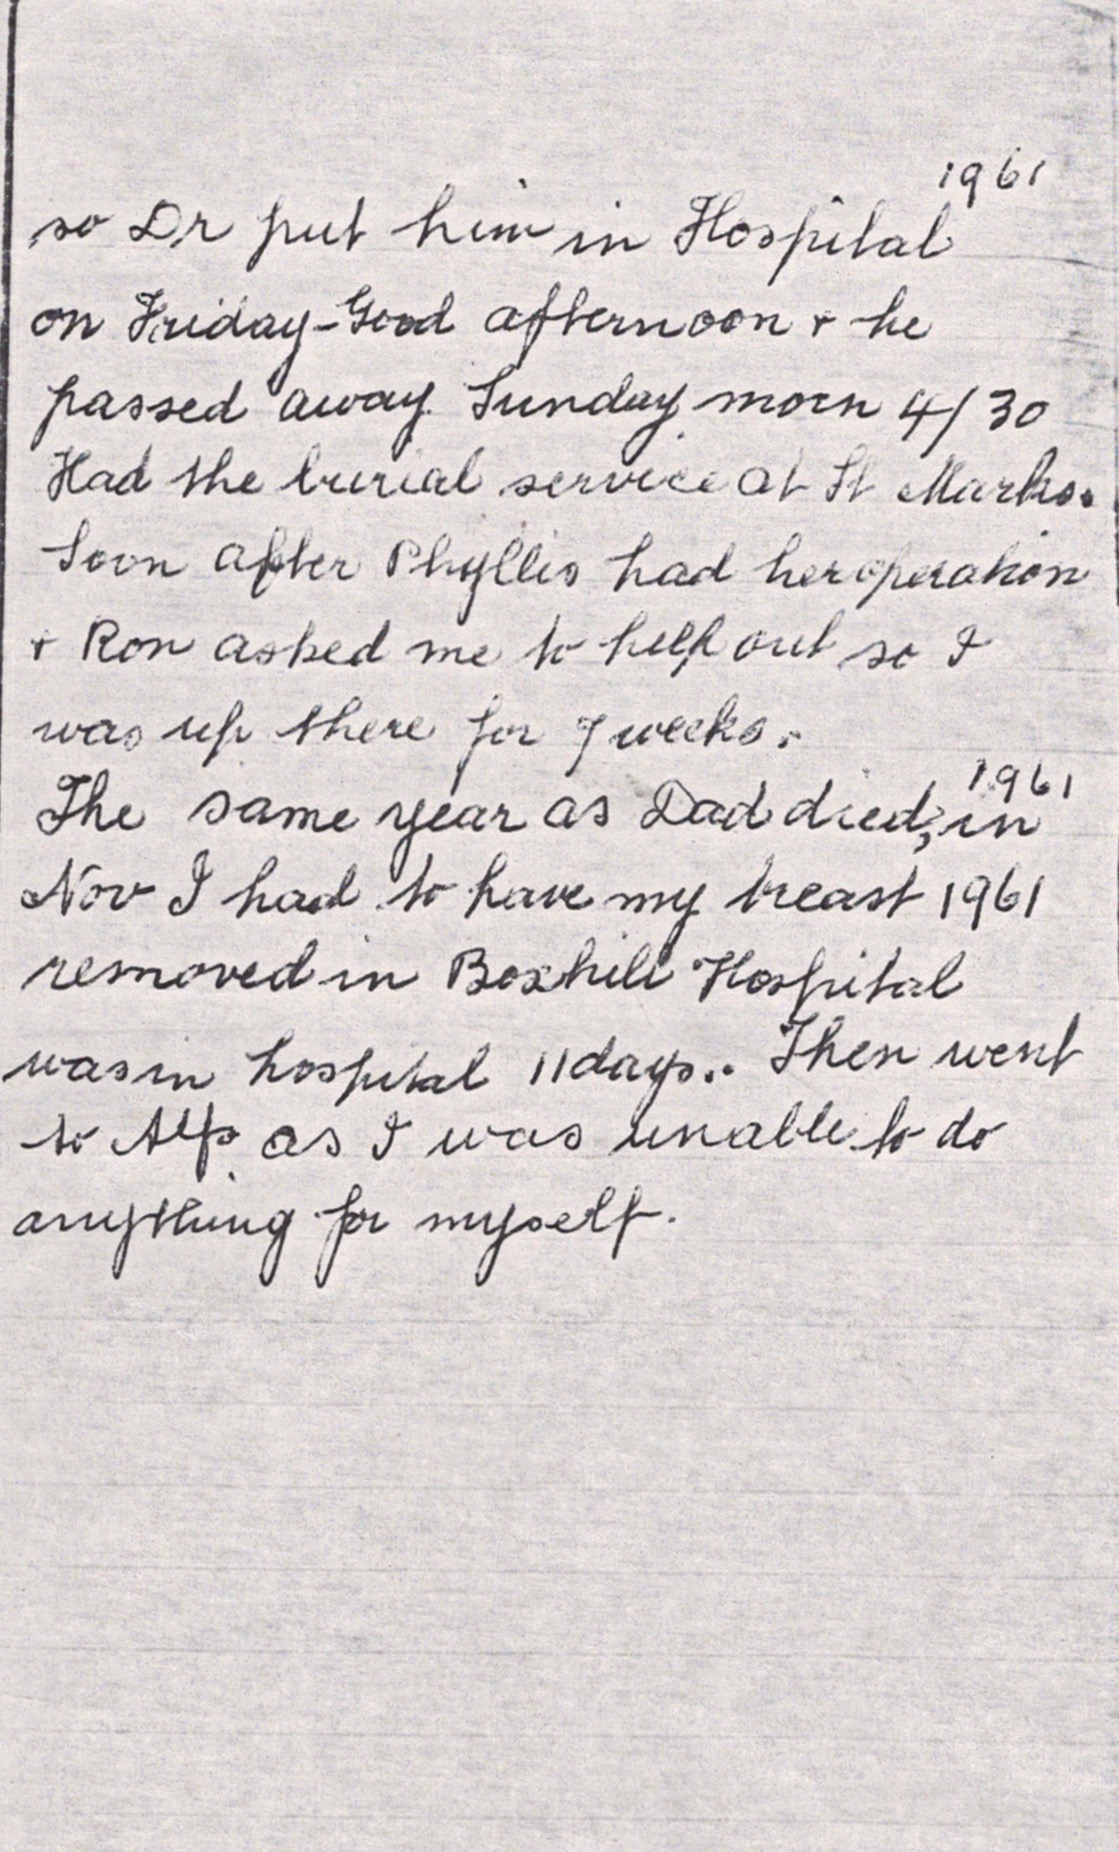 1961
so Dr put him in Hospital
on Friday-Good afternoon + he
passed away Sunday morn 4/30
Had the burial service at St Marks.
Soon after Phyllis had her operation
+ Ron asked me to help out so I
was up there for 7 weeks.
1961
The same year as Dad died, in
Nov I had to have my breast 1961
removed in Boxhill Hospital
was in hospital 11 days.. Then went
to Alfs as I was unable to do
anything for myself.